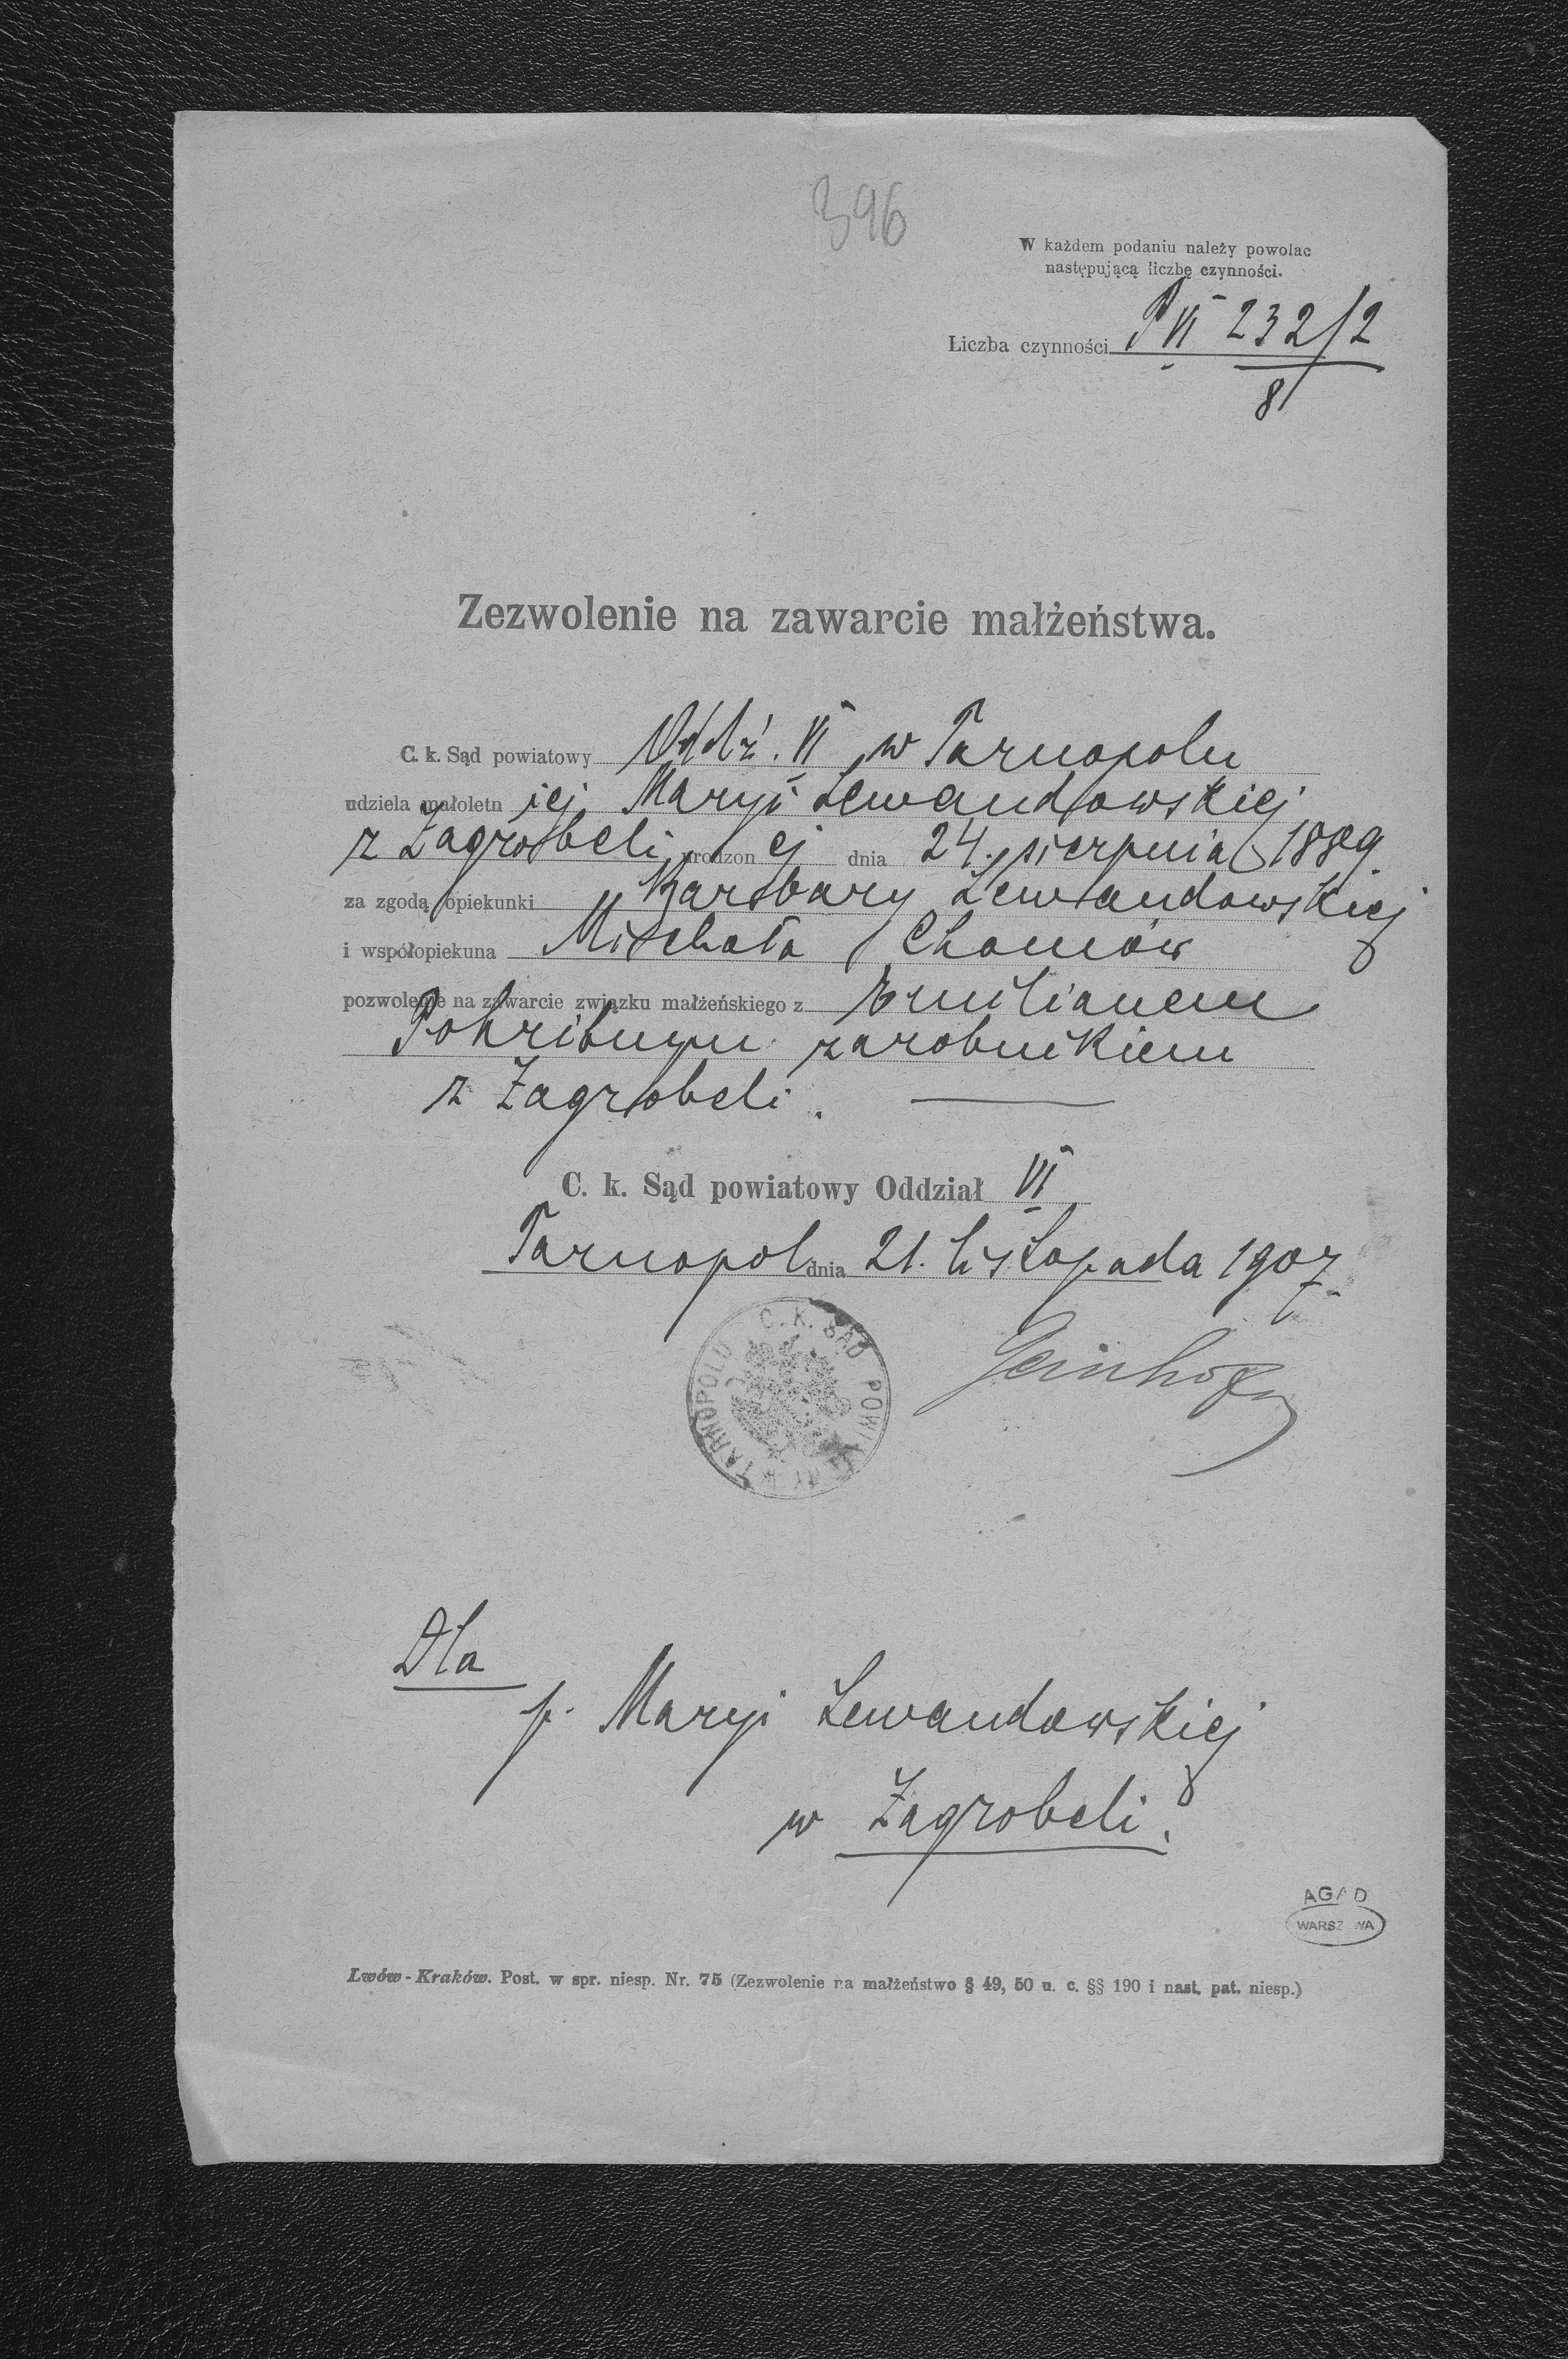 396
W każdem podaniu należy powolac
następującą liczbę czynności.
Liczba czynności P VI 232/2
8
Zezwolenie na zawarcie małżeństwa.
C. k. Sąd powiatowy Oddź. VI w Tarnopolu
udziela małoletn iej Maryi Lewandowskiej
z Zagrobeli urodzon ej dnia 24. sierpnia 1889
za zgodą opiekunki Barbary Lewandowskiej
i współopiekuna Michała Chomów
pozwolenie na zawarcie związku małżeńskiego z Emilianem
Pohribnym zarobnikiem
z Zagrobeli.
C. k. Sąd powiatowy Oddział VI
Tarnopol dnia 21. listopada 1907
C. K. SĄD POWIATOWY W TARNOPOLU
Dla
p. Maryi Lewandowskiej
w Zagrobeli.
AGAD
WARSZAWA
Lwów-Kraków. Post. w spr. niesp. Nr. 75 (Zezwolenie na małżeństwo § 49, 50 u. c. §§ 190 i nast. pat. niesp.)